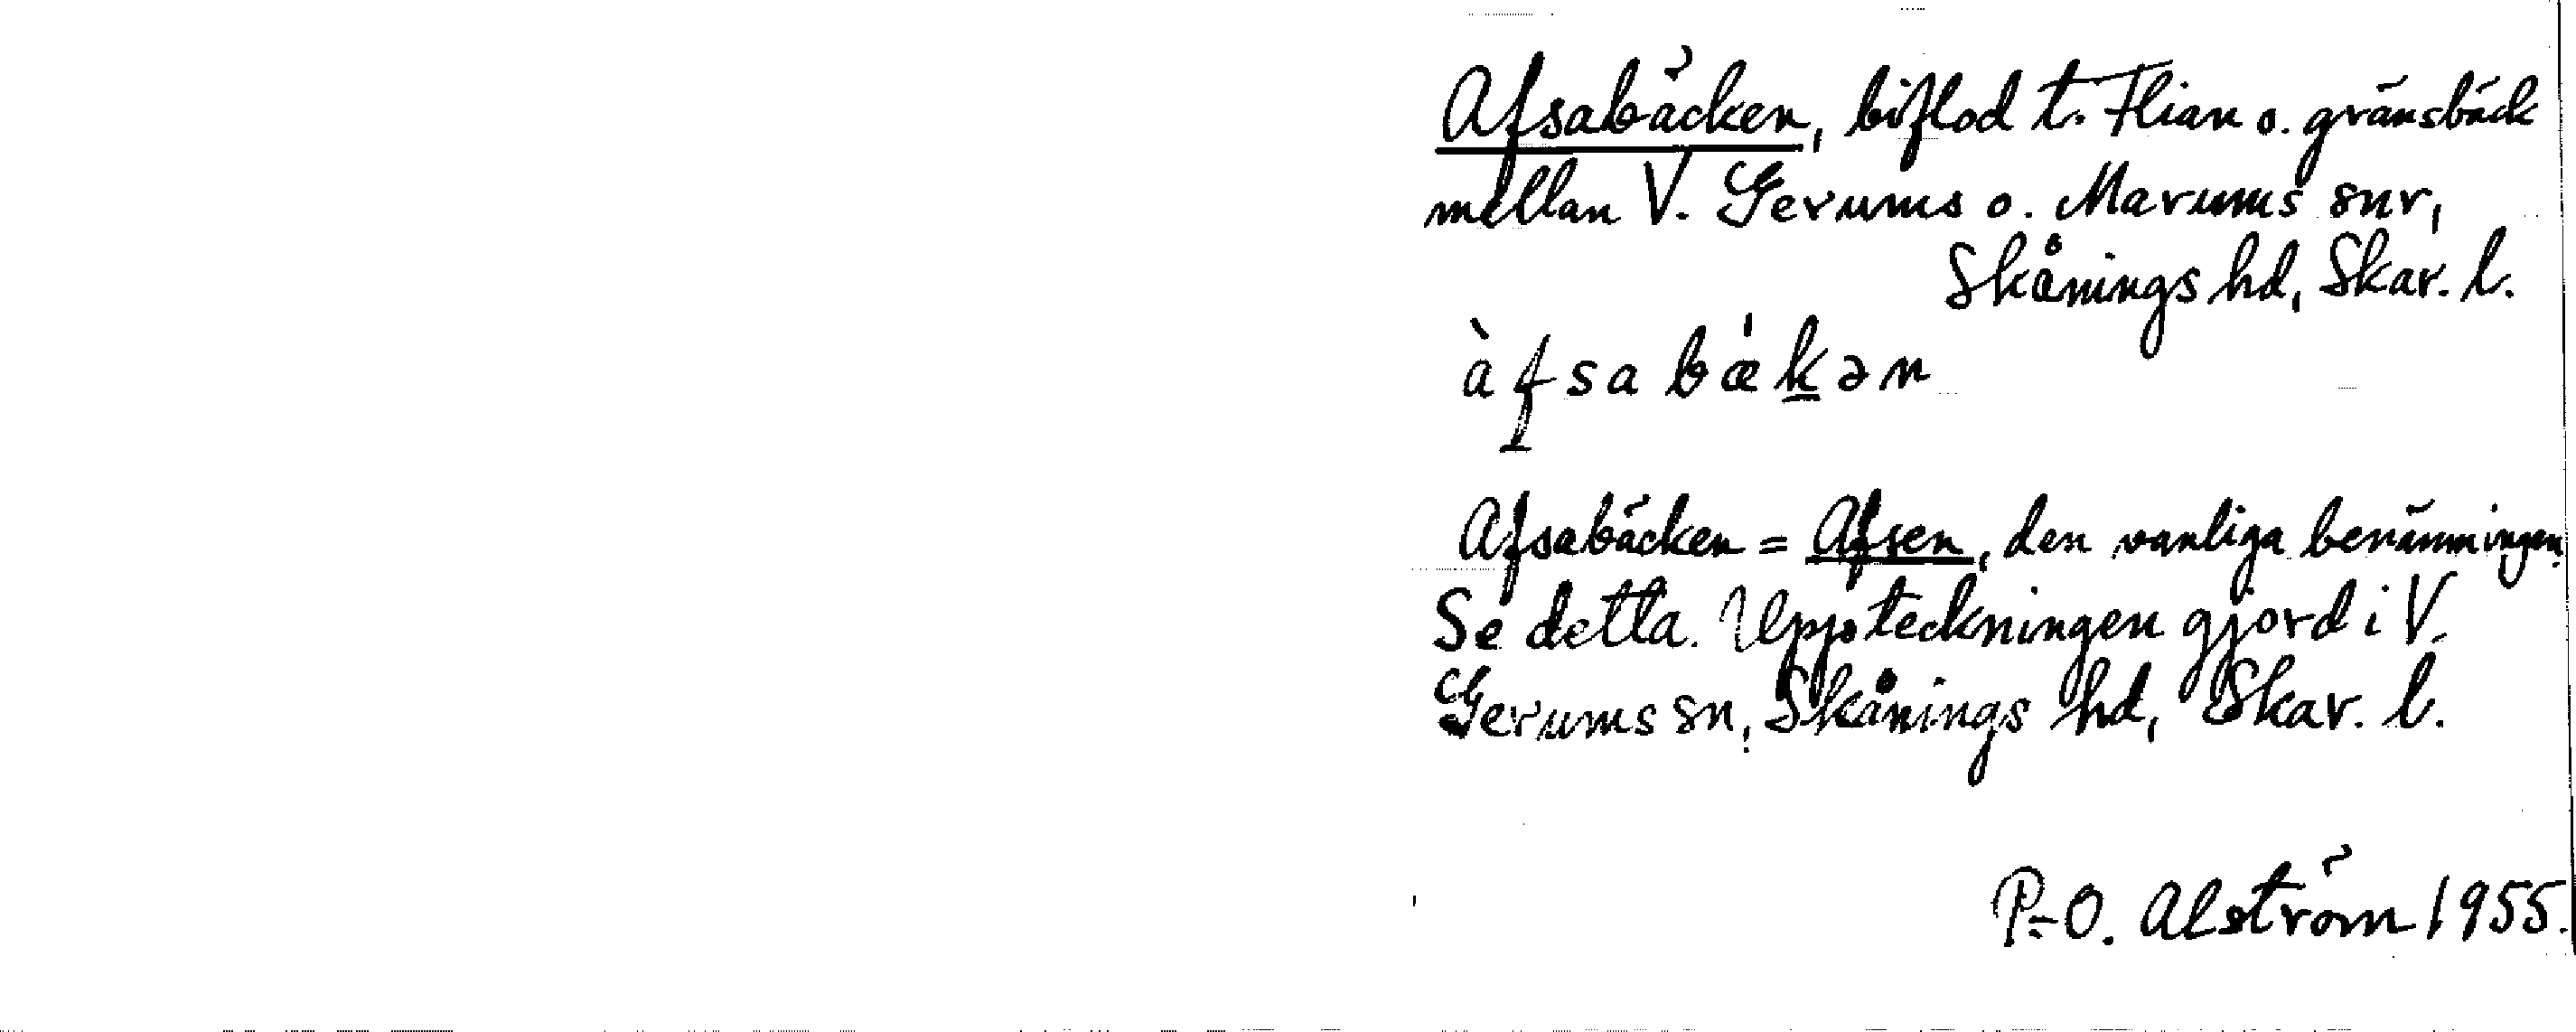 Afsabäcken, biflod t. Flian o. gränsbäck
mellan V. Gerums o. Marums snr,
Skånings hd, Skar. l.
àfsabæ'kən
Afsabäcken = Afsen, den vanliga benämningen.
Se detta. Uppteckningen gjord i V.
Gerums sn, Skånings hd, Skar. l.
P.-O. Alström 1955.